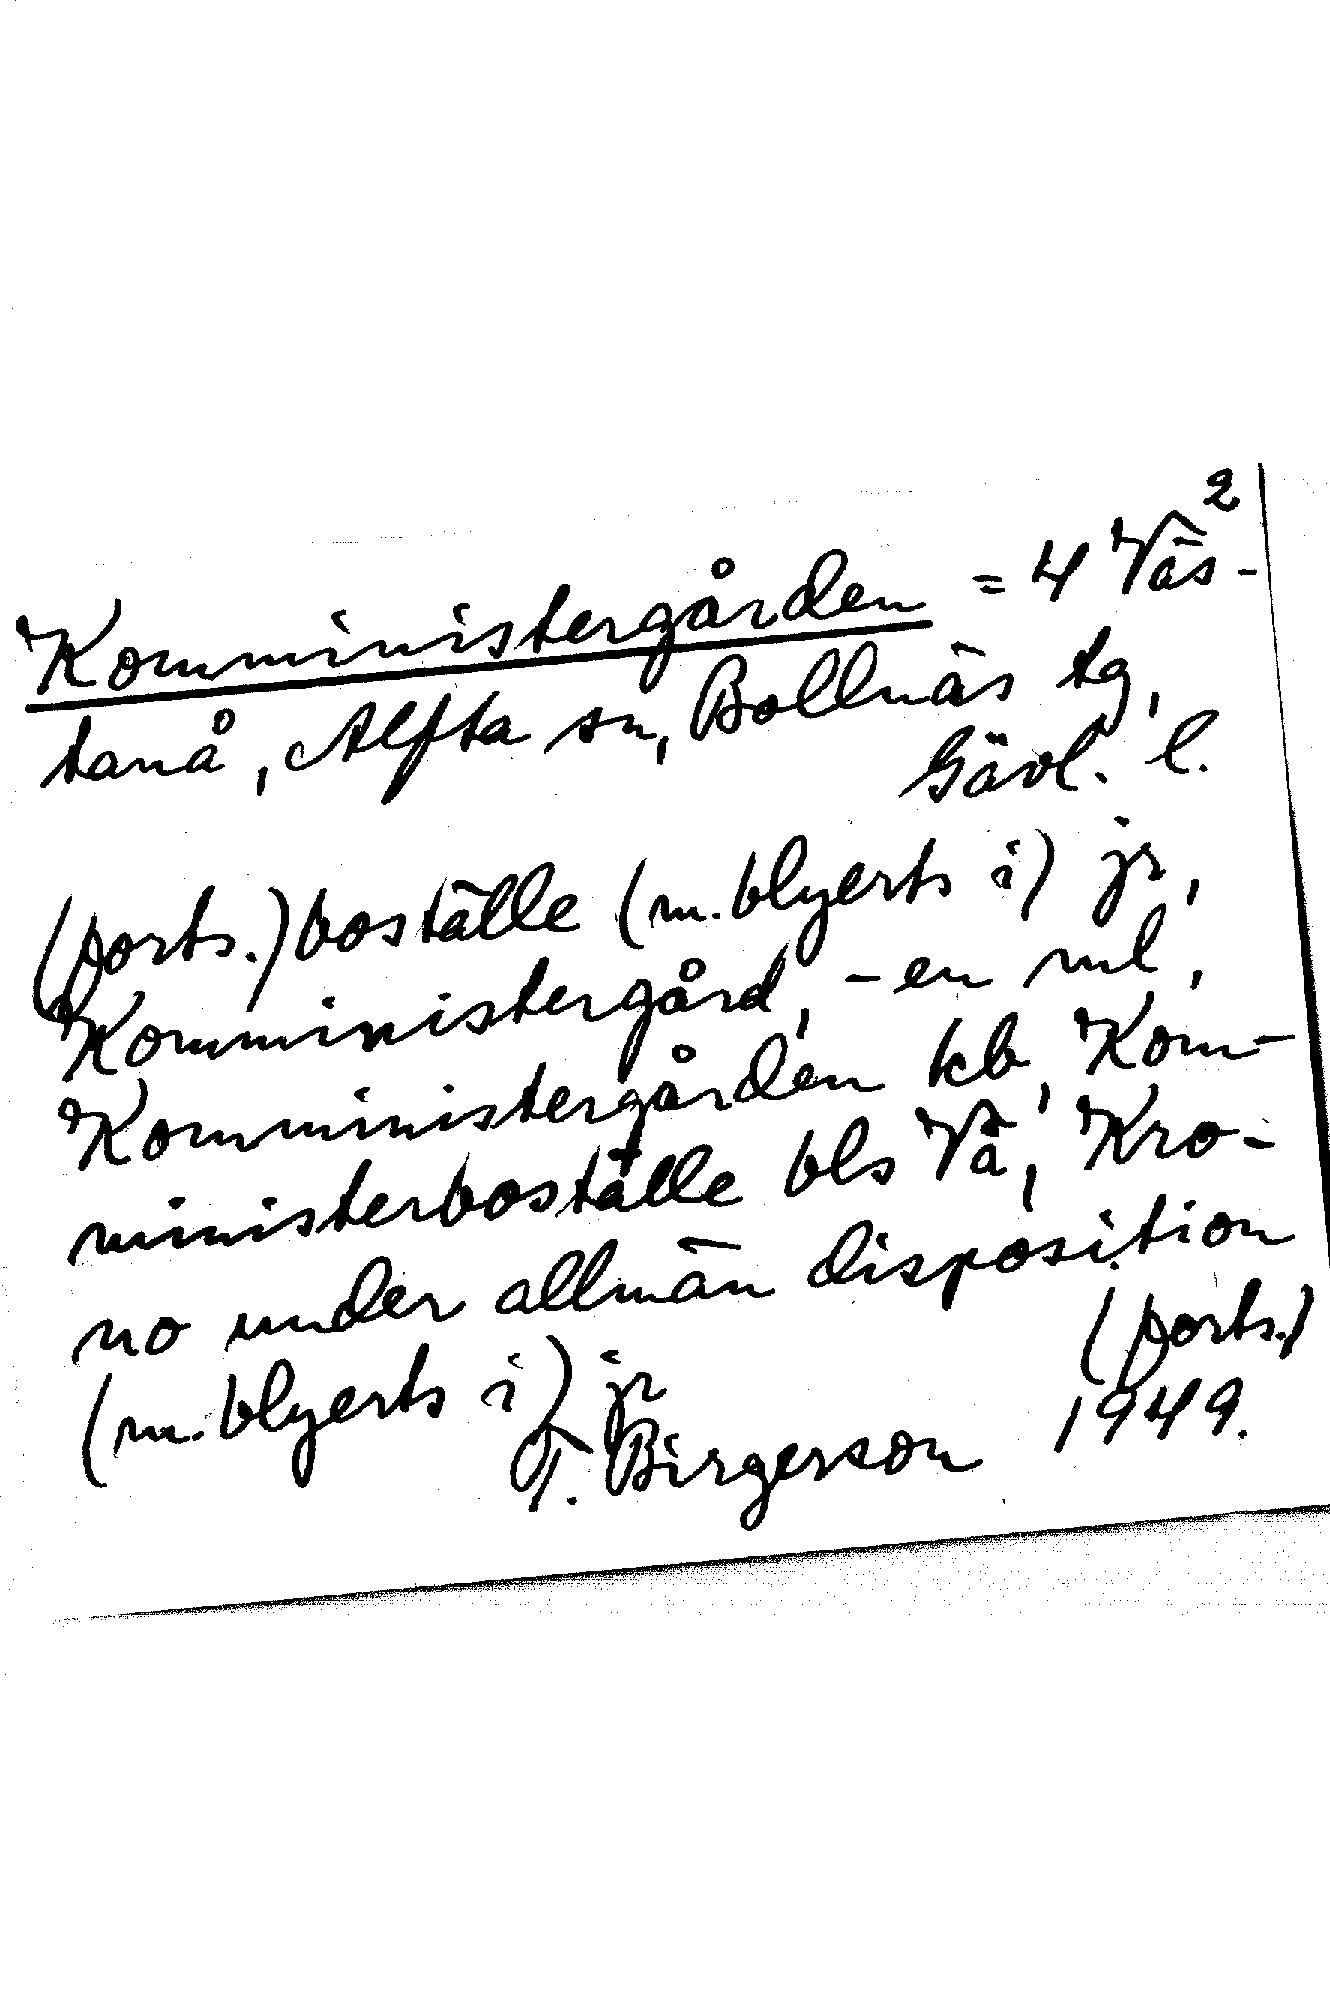 Komministergården = 4 Väs-²
tanå, Alfta sn, Bollnäs tg,
Gävl. l.
(forts.) boställe (m. blyerts i) jr,
Komministergård, -en ml,
Komministergården kb, Kom-
ministerboställe bls Vä, Kro-
no under allmän disposition
(m. blyerts i) jr (forts.)
T. Birgerson 1949.